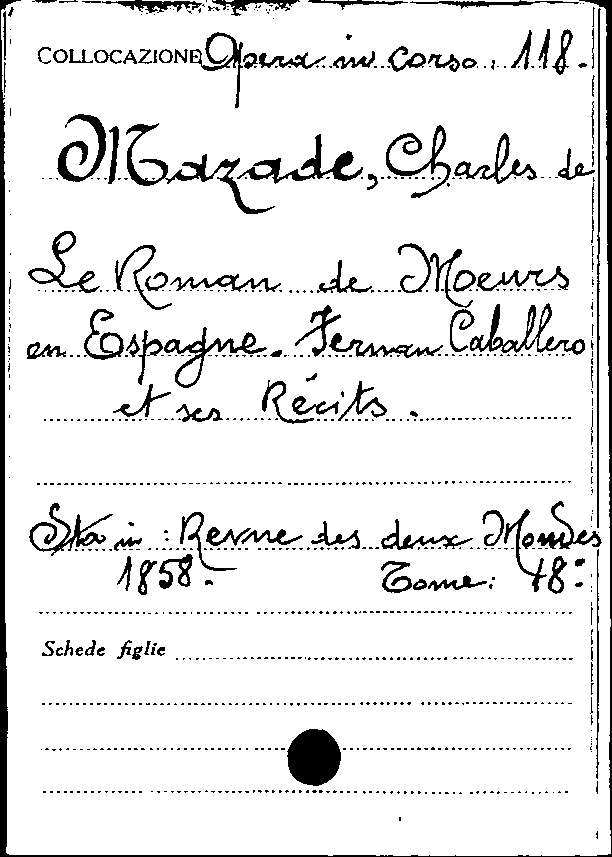 COLLOCAZIONE Opera in corso. 118.
Mazade, Charles de
Le Roman de Moeurs
en Espagne. Fernan Caballero
et ses Récits.
Sta in: Revue des deux Mondes
1858. Tome: 18:
Schede figlie